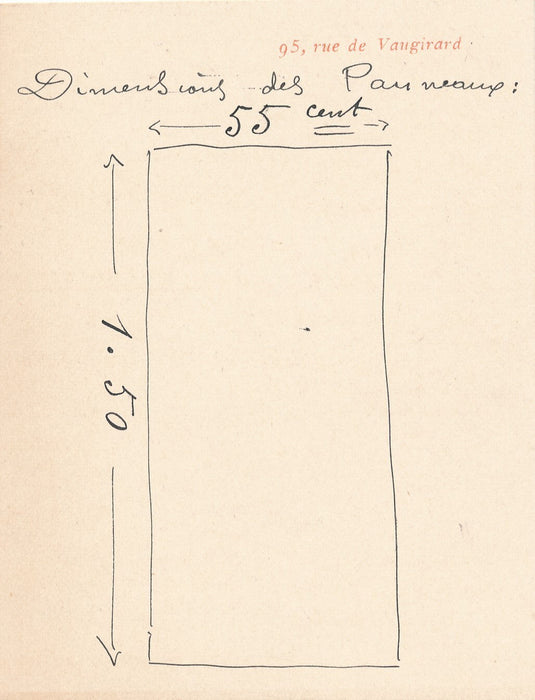 95, rue de Vaugirard
Dimensions des Panneaux:
55 cent
1.50